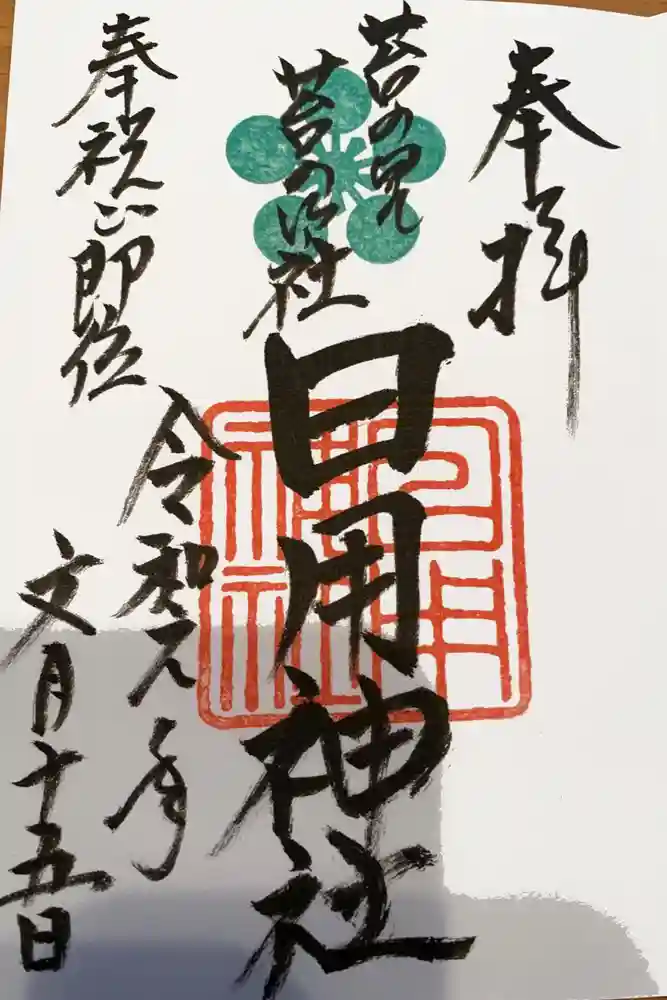 奉拝
苔の里
苔の神社
日用神社
日用
神社
奉祝御即位
令和元年
文月十五日